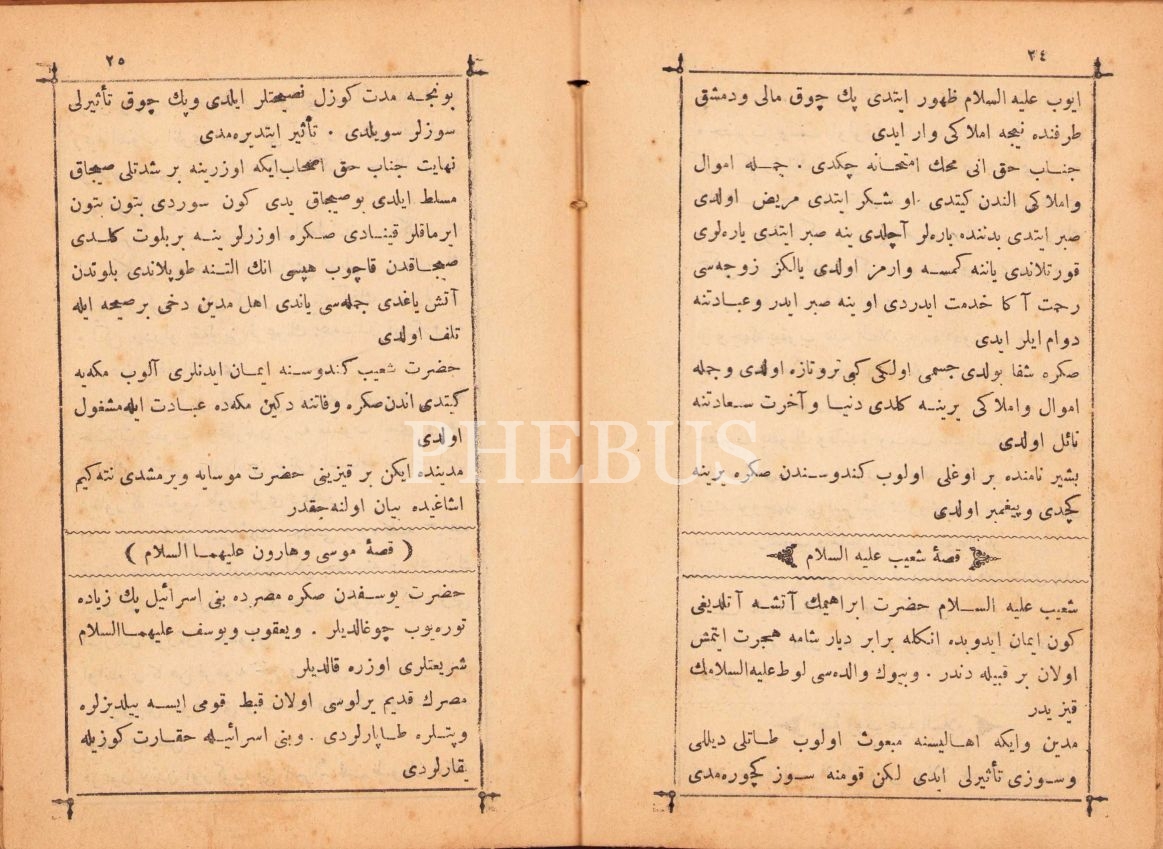 ٢٤
ايوب عليه السلام ظهور ايتدى پك چوق مالى ودمشق
طرفنده نيجه املاكى وار ايدى
جناب حق انى محك امتحانه چكدى . جمله اموال
واملاكى الندن كيتدى او شكر ايتدى مريض اولدى
صبر ايتدى بدننده ياره‌لر آچلدى ينه صبر ايتدى ياره‌لرى
قورتلاندى ياننه كمسه وارمز اولدى يالكز زوجه‌سى
رحمت آكا خدمت ايدردى او ينه صبر ايدر وعبادتنه
دوام ايلر ايدى
صكره شفا بولدى جسمى اولكى كبى تر وتازه اولدى وجمله
اموال واملاكى يرينه كلدى دنيا وآخرت سعادتنه
نائل اولدى
بشير نامنده بر اوغلى اولوب كندوسندن صكره يرينه
كچدى وپيغمبر اولدى
قصهٔ شعيب عليه السلام
شعيب عليه السلام حضرت ابراهيمك آتشه آتلديغى
كون ايمان ايدوبده انكله برابر ديار شامه هجرت ايتمش
اولان بر قبيله دندر . وبيوك والده‌سى لوط عليه السلامك
قيزيدر
مدين وايكه اهاليسنه مبعوث اولوب طاتلى ديللى
وسوزى تأثيرلى ايدى لكن قومنه سوز كچوره‌مدى
٢٥
بونجه مدت كوزل نصيحتلر ايلدى وپك چوق تأثيرلى
سوزلر سويلدى . تأثير ايتديره‌مدى
نهايت جناب حق اصحاب ايكه اوزرينه بر شدتلى صيجاق
مسلط ايلدى بو صيجاق يدى كون سوردى بتون بتون
ايرماقلر قينادى صكره اوزرلرينه بر بلوت كلدى
صيجاقدن قاچوب هپسى انك التنه طوپلاندى بلوتدن
آتش ياغدى جمله‌سى ياندى اهل مدين دخى بر صيحه ايله
تلف اولدى
حضرت شعيب كندوسنه ايمان ايدنلرى آلوب مكه‌يه
كيتدى اندن صكره وفاتنه دكين مكه‌ده عبادت ايله مشغول
اولدى
مدينده ايكن بر قيزينى حضرت موسايه ويرمشدى نته‌كيم
اشاغيده بيان اولنه‌جقدر
( قصهٔ موسى وهارون عليهما السلام )
حضرت يوسفدن صكره مصرده بنى اسرائيل پك زياده
توره‌يوب چوغالديلر . ويعقوب ويوسف عليهما السلام
شريعتلرى اوزره قالديلر
مصرك قديم يرلوسى اولان قبط قومى ايسه ييلديزلره
وپتلره طاپارلردى . وبنى اسرائيله حقارت كوزيله
بقارلردى
PHEBUS